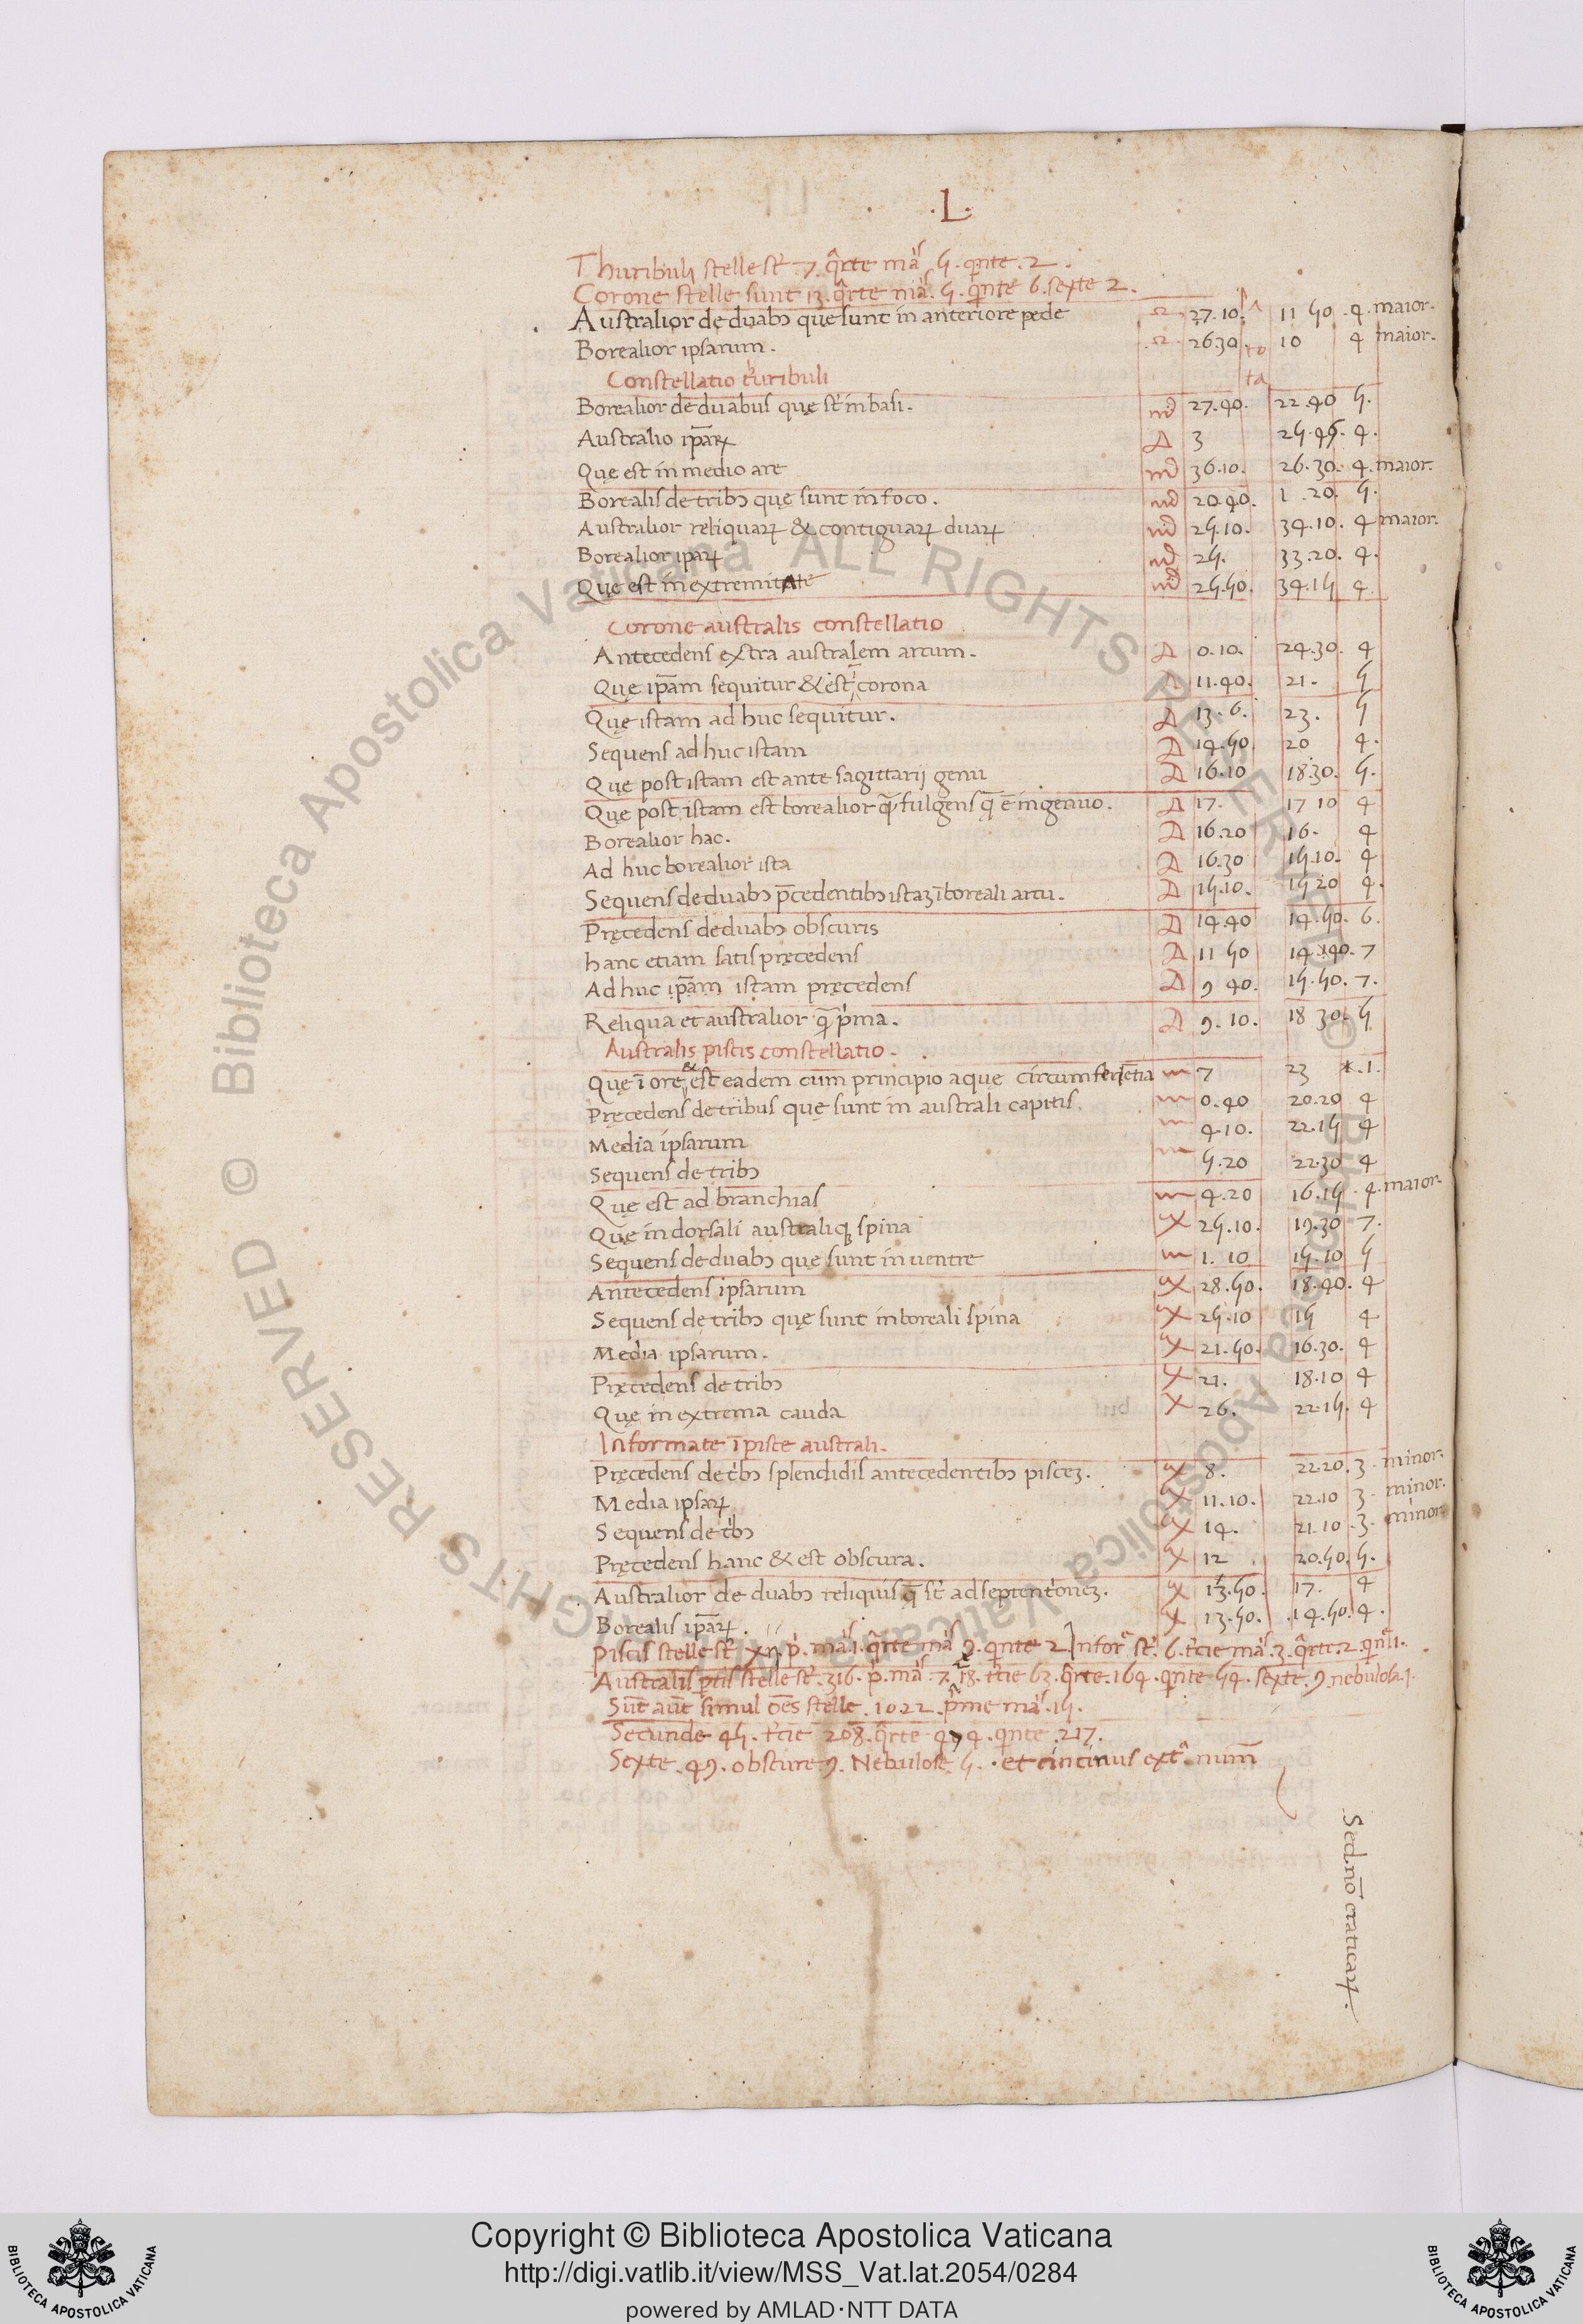 .L.
Thuribuli stelle st̄ .7. q̂rte ma͛ 5. qnte .2.
Corone stelle sunt 13. q̂rte ma͛. 5. q̂nte 6. sexte 2.
Australior de duabꝫ que sunt in anteriore pede ♎ 27.10. 11 50 .4. maior.
Borealior ipsarum. ♎ 26 30. 10 4 maior.
Constellatio turibuli
Borealior de duabus quę st̄ in basi. ♏ 27.40. 22.40 5.
Australio ip̄aꝝ ♐ 3 25.45. 4.
Quę est in medio are ♏ 36.10. 26.30. 4. maior.
Borealis de tribꝫ quę sunt in foco. ♏ 20.40. 1 .20. 5.
Australior reliquaꝝ & contiguaꝝ duaꝝ ♏ 25.10. 34.10. 4 maior.
Borealior ipaꝝ ♏ 25. 33.20. 4.
Quę est in extremitAte ♏ 25.50. 34.15 4.
Corone australis constellatio
Antecedens extra australem arcum. ♐ 0.10. 24.30. 4
Quę ip̄am sequitur & est ī corona ♐ 11.40. 21. 5
Quę istam ad huc sequitur. ♐ 13.6. 23. 5
Sequens ad huc istam ♐ 14.50 20 4.
Que post istam est ante sagittarij genu ♐ 16.10 18.30. 5.
Quę post istam est borealior q̄ fulgens q̄ ē in genuo. ♐ 17. 17 10 4
Borealior hac. ♐ 16.20 16. 4
Ad huc borealior ista ♐ 16.30 15.10. 4
Sequens de duabꝫ p̄cedentibꝫ istaꝫ ī boreali arcu. ♐ 15.10. 15 20 4.
Pręcedens de duabꝫ obscuris ♐ 14.40 14.50. 6.
hanc etiam satis pręcedens ♐ 11 50 14.40. 7
Ad huc ip̄am istam pręcedens ♐ 9 40. 15.50. 7.
Reliqua et australior q̄ p̍ma. ♐ 9. 10. 18 30. 5
Australis piscis constellatio.
Quę ī ore & est eadem cum principio aque circumferētia ♒ 7 23 *.1.
Pręcedens de tribus quę sunt in australi capitis. ♒ 0.40 20.20 4
Media ipsarum ♒ 4.10. 22.15 4
Sequens de tribꝫ ♒ 5.20 22.30 4
Quę est ad branchias ♒ 4.20 16.15 .4. maior.
Quę in dorsali australiqꝫ spina ♑ 25.10. 19.30 7.
Sequens de duabꝫ que sunt in uentre ♒ 1. 10 15.10 5
Antecedens ipsarum ♑ 28.50. 18.40. 4
Sequens de tribꝫ quę sunt in boreali spina ♑ 25.10 15 4
Media ipsarum. ♑ 21.50. 16.30. 4
Pręcedens de tribꝫ ♑ 21. 18.10 4
Quę in extrema cauda ♑ 26. 22.15. 4
Informate ī pisce australi.
Pręcedens de t̍bꝫ splendidis antecedentibꝫ pisceꝫ. ♑ 8. 22.20. 3 . minor.
Media ipsaꝝ ♑ 11.10. 22.10 3 . minor.
Sequens de t̍bꝫ ♑ 14. 21.10 .3. minor
Pręcedens hanc & est obscura. ♑ 12 20.50. 5.
Australior de duabꝫ reliquis q̄ st̄ ad septent̍oneꝫ. ♑ 13.50. 17. 4
Borealis ip̄aꝝ. ♑ 13.50. .14.50. 4.
Piscis stelle st̄ xii. p̍. ma͛.1. q̂rte ma͛ 9. qnte 2. Infor̄ st̄. 6. t̍cie ma͛. 3. q̂rte. 2. qnt̄ 1.
Australis p̄tis stelle st̄ .316. p̍. ma͛. 7. 18. t̍cie 63. q̂rte .164. qnte 54. sexte. 9 nebulosa. 1.
Sūt aūt simul oēs stelle .1022. p̍me ma͛ .15.
Secunde 45. t̍cie 208. q̂rte 474. qnte .217.
Sexte .49. obscure 9. Nebulose 5. . et cincinus ext̂ num̄
Sed nō eraticaꝝ.
© Biblioteca Apostolica Vaticana ALL RIGHTS RESERVED © Biblioteca Apostolica Vaticana ALL RIGHTS RESERVED
Copyright © Biblioteca Apostolica Vaticana
http://digi.vatlib.it/view/MSS_Vat.lat.2054/0284
powered by AMLAD·NTT DATA
BIBLIOTECA APOSTOLICA VATICANA
BIBLIOTECA APOSTOLICA VATICANA